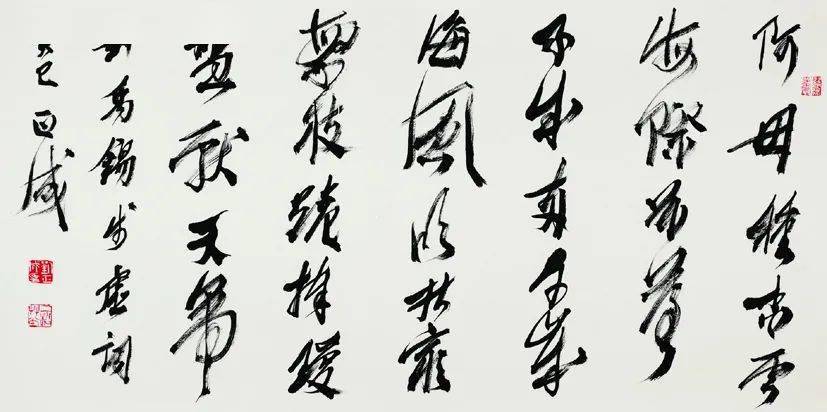 阿母種桃雲
海際花落
子成貳千歲
海風吹折最
繁枝跪捧瓊
盤獻天帝
劉禹錫步虛詞
巳正成